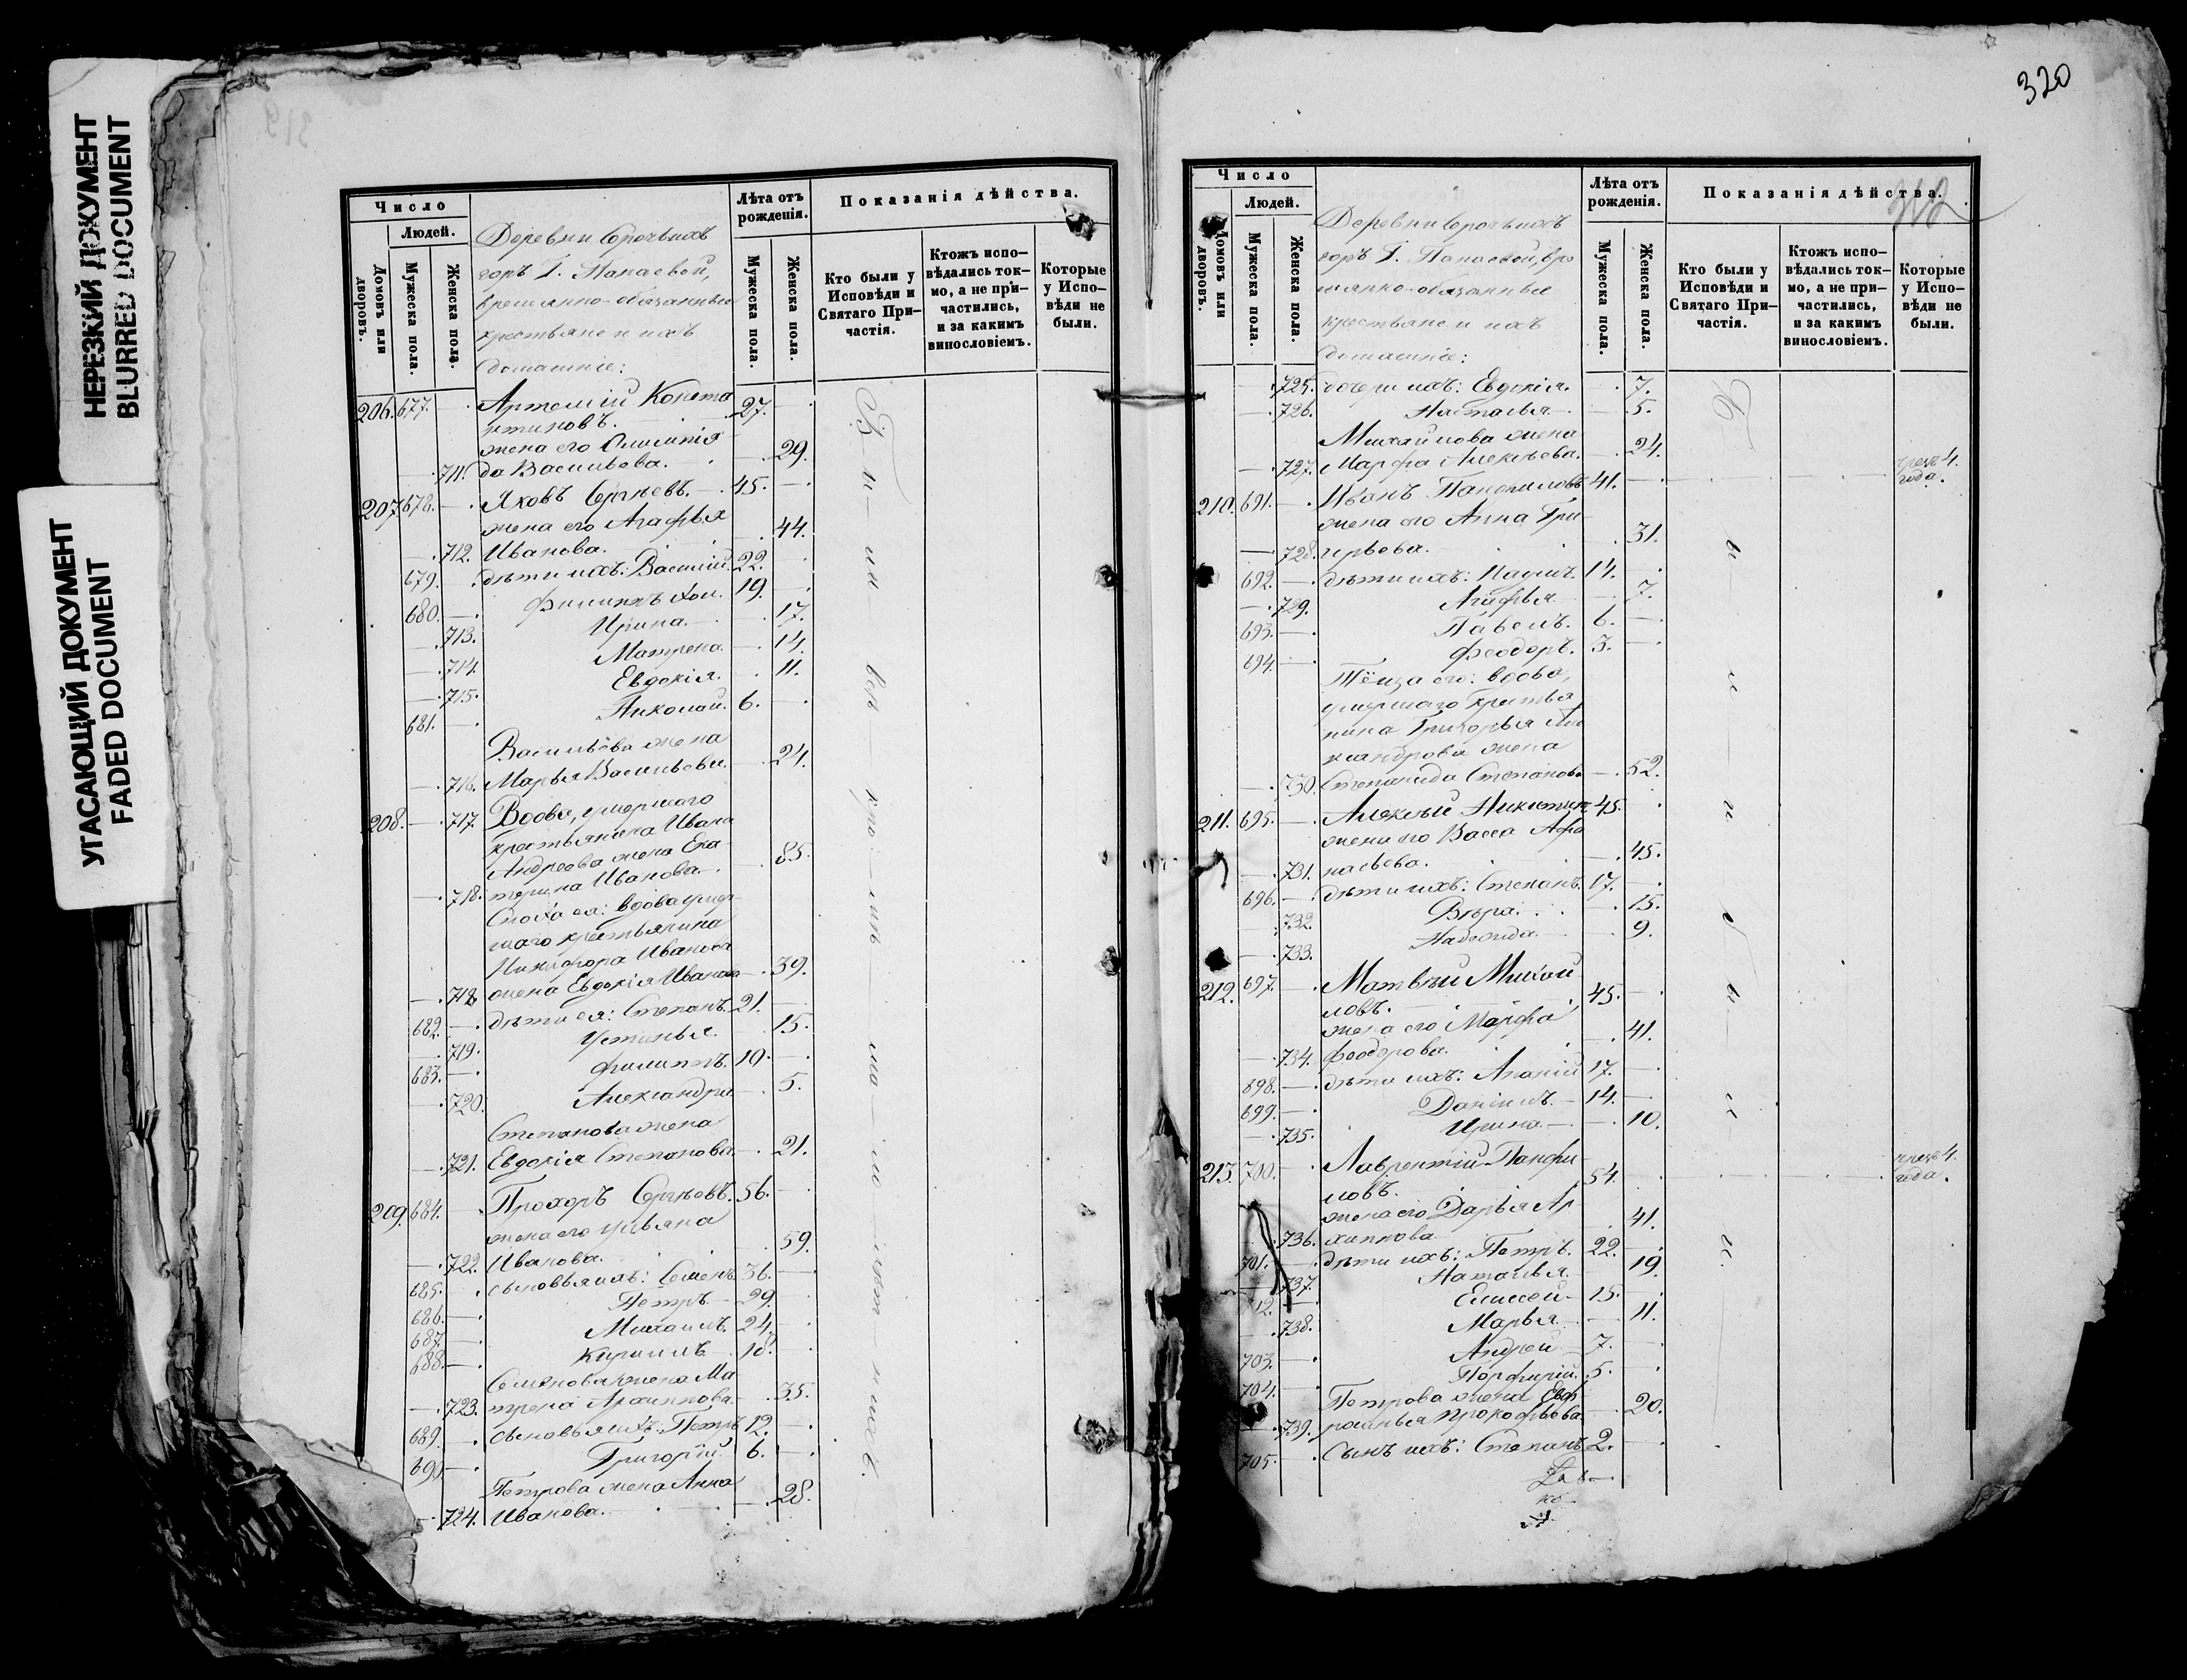 НЕРЕЗКИЙ ДОКУМЕНТ
BLURRED DOCUMENT
УГАСАЮЩИЙ ДОКУМЕНТ
FADED DOCUMENT
Число
Людей.
Домовъ или дворовъ.
Мужеска пола.
Женска пола.
Деревни Сорочьихъ
горъ Г. Панаевой,
временно-обязанные
крестьяне и ихъ
домашніе:
Лѣта отъ рожденія.
Мужеска пола.
Женска пола.
Показанія дѣйства.
Кто были у Исповѣди и Святаго Причастія.
Ктожъ исповѣдались токмо, а не причастились, и за какимъ винословіемъ.
Которые у Исповѣди не были.
206. 677. Артемій Конста 27.
нтиновъ.
жена его Олимпія 29.
711. да Васильева.
207. 678. Яковъ Сергѣевъ. 45.
жена его Агафья 44.
712. Иванова.
679. дѣти ихъ: Василій. 22.
680. Филиппъ хол. 19.
713. Ирина. 17.
714. Матрена. 14.
715. Евдокія. 11.
681. Николай. 6.
Васильева жена 24.
716. Марья Васильева.
208. 717. Вдова, умершаго
крестьянина Ивана
Андреева жена Ека 85.
718. терина Иванова.
Сноха ея: вдова умер
шаго крестьянина
Никифора Иванова 39.
718 жена Евдокія Иванова
682. дѣти ея: Степанъ. 21.
719. Устинья. 15.
683. Филиппъ. 10.
720. Александра 5.
Степанова жена
721. Евдокія Степанова. 21.
209. 684. Прохоръ Сергѣевъ. 56.
жена его Ульяна 59.
722. Иванова.
685. сыновья ихъ: Семенъ. 36.
686. Петръ 29.
687. Михаилъ. 24.
688. Кириллъ 18.
Семенова жена Ма
723. трена Архиппова. 35.
689. сыновья ихъ: Петръ 12.
690. Григорій. 6.
Петрова жена Анна 28.
724. Иванова.
320
Число
Людей.
Домовъ или дворовъ.
Мужеска пола.
Женска пола.
Деревни Сорочьихъ
горъ Г. Панаевой, вре
менно-обязанные
крестьяне и ихъ
домашніе:
Лѣта отъ рожденія.
Мужеска пола.
Женска пола.
Показанія дѣйства.
Кто были у Исповѣди и Святаго Причастія.
Ктожъ исповѣдались токмо, а не причастились, и за какимъ винословіемъ.
Которые у Исповѣди не были.
725. дочери ихъ: Евдокія. 7.
726. Настасья 5.
Михайлова жена 24.
727. Марфа Алексѣева.
210. 691. Иванъ Панфиловъ 41. чрезъ 4. года.
жена его Анна Гри 31.
728. горьева.
692. дѣти ихъ: 14.
729. Агафья 7.
693. Павелъ. 6.
694. Феодоръ. 3.
Тёща его: вдова,
умершаго крестья
нина Григорья Але
ксандрова жена
730. Степанида Степанова 52.
211. 695. Алексѣй Никитинъ 45.
жена его Васса Афа 45.
731. насьева.
696. дѣти ихъ: Степанъ. 17.
732. Вѣра. 15.
733. Надежда. 9.
212. 697. Матвѣй Михай 45.
ловъ.
жена его Марфа 41.
734. Феодорова.
698. дѣти ихъ: Ананій 17.
699. Даніилъ. 14.
735. Ирина. 10.
213. 700. Лаврентій Панфи 54. чрезъ 4. года.
ловъ.
жена его Дарья Ар 41.
736. хиппова
701. дѣти ихъ: Петръ. 22.
737. Наталья. 19.
Елисей 15.
738. Марья 11.
703. Андрей 7.
704. Порфирій. 5.
Петрова жена Евф 20.
739. росинья Прокофьева
705. Сынъ ихъ: Степанъ 2.